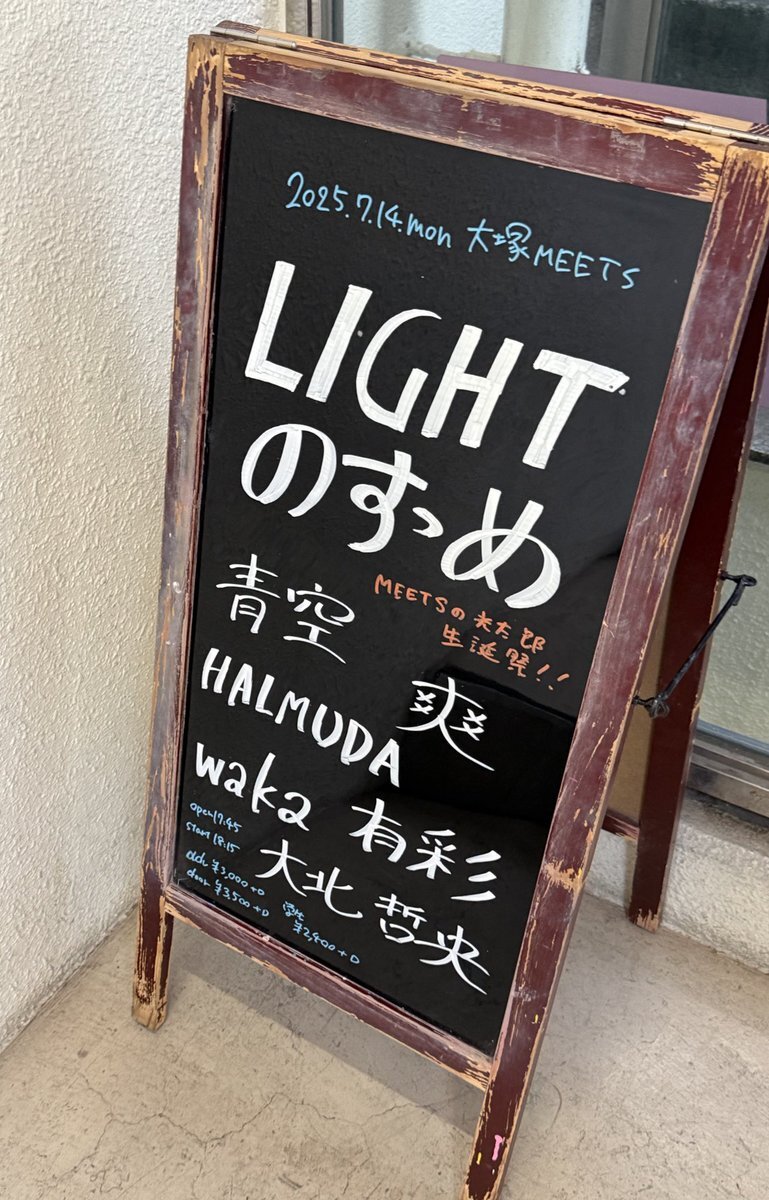 2025.7.14.mon 大塚MEETS
LIGHT
のすすめ
MEETSの光太郎
生誕祭!!
青空
爽
HALMUDA
waka
有彩
大北 哲央
open17:45
start 18:15
adv. ¥3,000+D
door ¥3,500+D
学生
¥2,400+D